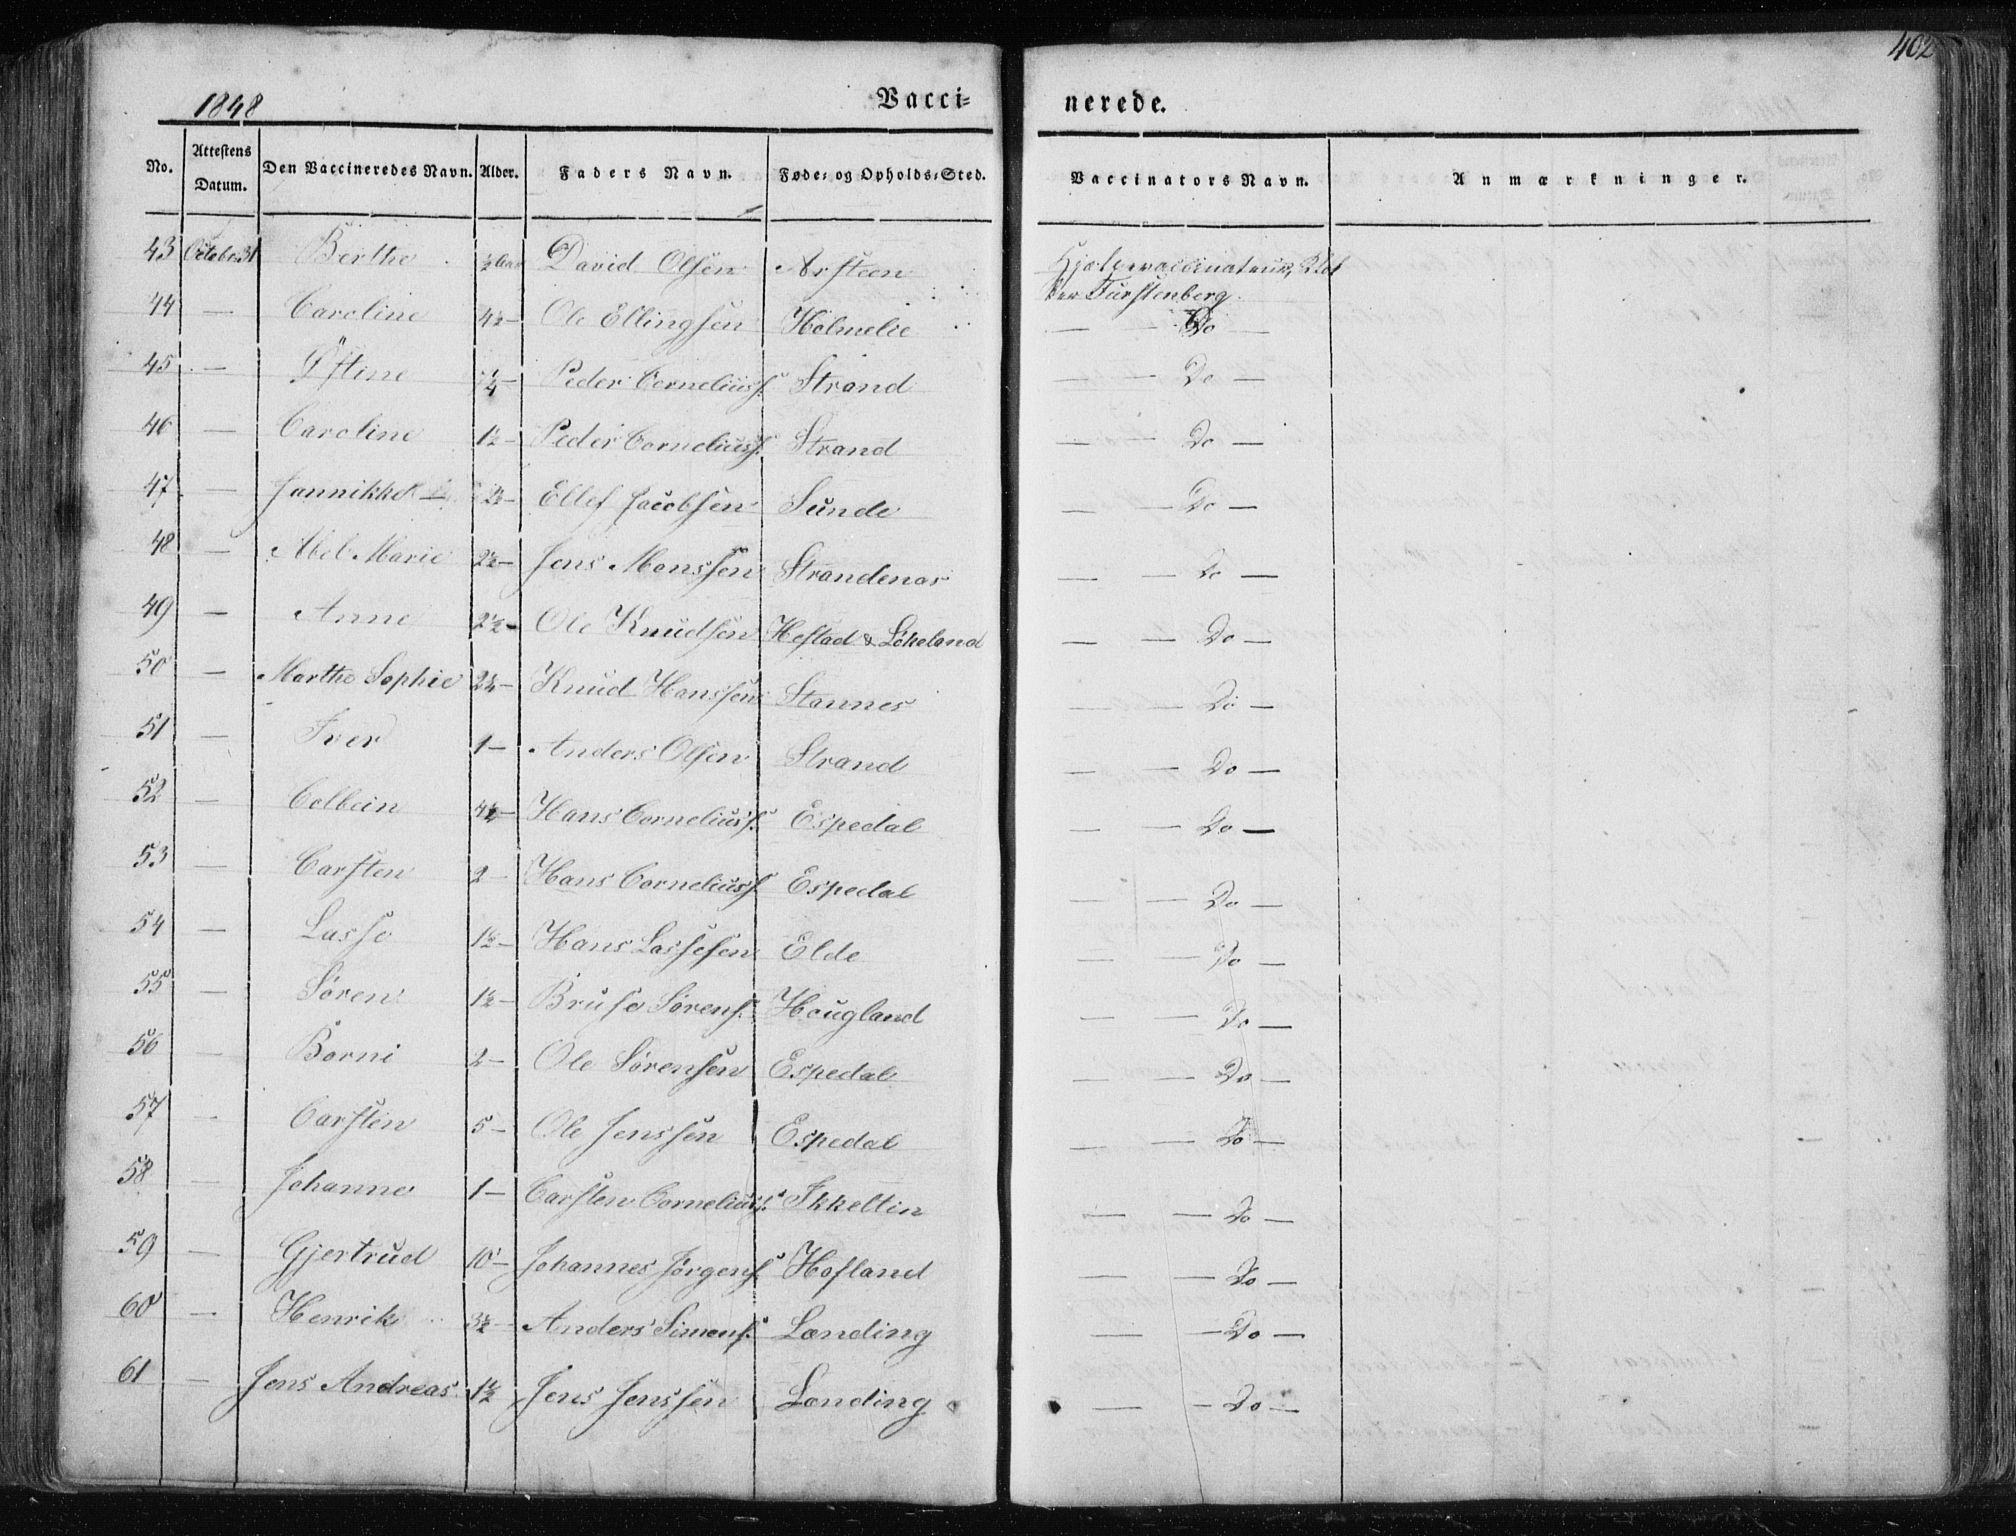 402
1848 Vaccinerede.
No. Attestens Datum. Den Vaccineredes Navn. Alder. Faders Navn. Føde- og Opholds-Sted. Vaccinators Navn. Anmærkninger.
43 October 31 Berthe ½ David Olsen Arsteen Hjelpevaccinateur,
Furstenberg.
44 — Caroline 4½ — Ole Ellingsen Holmelie — — Do —
45 — Østine ¼ — Peder Corneliuss. Strand — — Do —
46 — Caroline 1½ — Peder Corneliuss. Strand — — Do —
47 — Jannikke — Ellef Jacobsen Sunde — — Do —
48 — Abel Marie 2½ — Jens Monssen Strandenas — — Do —
49 — Anne 2½ — Ole Knudsen Hestad & Løkeland — — Do —
50 — Marthe Sophie 2¼ — Knud Hanssen Stannes — — Do —
51 — Iver 1 — Anders Olsen Strand — — Do —
52 — Colbein 4½ — Hans Corneliuss. Espedal — — Do —
53 — Carsten 2 — Hans Corneliuss. Espedal — — Do —
54 — Lasse 1½ — Hans Lassesen Elde — — Do —
55 — Søren 1½ — Bruse Sørens. Hougland — — Do —
56 — Borni 2 — Ole Sørensen Espedal — — Do —
57 — Carsten 5 — Ole Jenssen Espedal — — Do —
58 — Johanne 1 — Carsten Corneliuss. Ikkeltin — — Do —
59 — Gjertrud 10 — Johannes Jørgens. Hofland — — Do —
60 — Henrik 3½ — Anders Simens. Landing — — Do —
61 — Jens Andreas 1½ Jens Jenssen Landing — — Do —